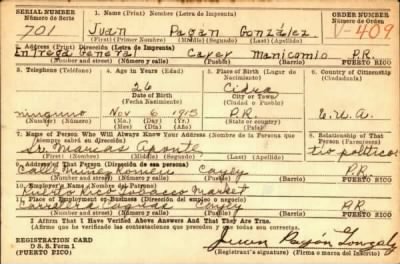 SERIAL NUMBER 1. Name (Print) Nombre (Letra de Imprenta) ORDER NUMBER
Número de Serie Número de Orden
701 Juan Pagán González V-409
(First) (Primer Nombre) (Middle) (Segundo) (Last) (Apellido)
2. Address (Print) Dirección (Letra de Imprenta)
Entrega General Cayey Manicomio P.R.
(Number and street) (Número y calle) (Town) (Pueblo) (Barrio) PUERTO RICO
3. Telephone (Teléfono) 4. Age in Years (Edad) 5. Place of Birth (Lugar de Nacimiento) 6. Country of Citizenship (Ciudadanía)
26 Cidra
Date of Birth City or Town
(Fecha Nacimiento) (Ciudad o Pueblo)
ninguno Nov 1915 P.R. E.U.A.
7. Name of Person Who Will Always Know Your Address (Nombre de la Persona que siempre sabrá su dirección) 8. Relationship of That Person (Parentesco)
Sr. Marcos Aponte tío político
(First) (Primer Nombre) (Middle) (Segundo) (Last) (Apellido)
9. Address of That Person (Dirección de esa persona)
Calle Muñoz Cayey P.R.
(Number and street) (Número y calle) (Town) (Pueblo) (Barrio) PUERTO RICO
10. Employer's Name (Nombre del Patrono)
Puerto Rico Tobacco Market
11. Place of Employment or Business (Dirección del empleo o negocio)
Carretera Caguas Cayey P.R.
(Number and street) (Número y calle) (Town) (Pueblo) (Barrio) PUERTO RICO
I Affirm That I Have Verified Above Answers and That They Are True.
(Afirmo que he verificado las contestaciones que anteceden y que son ciertas)
REGISTRATION CARD Juan Pagán González
D. S. S. Form 1 Registrant's signature (Firma del Registrado)